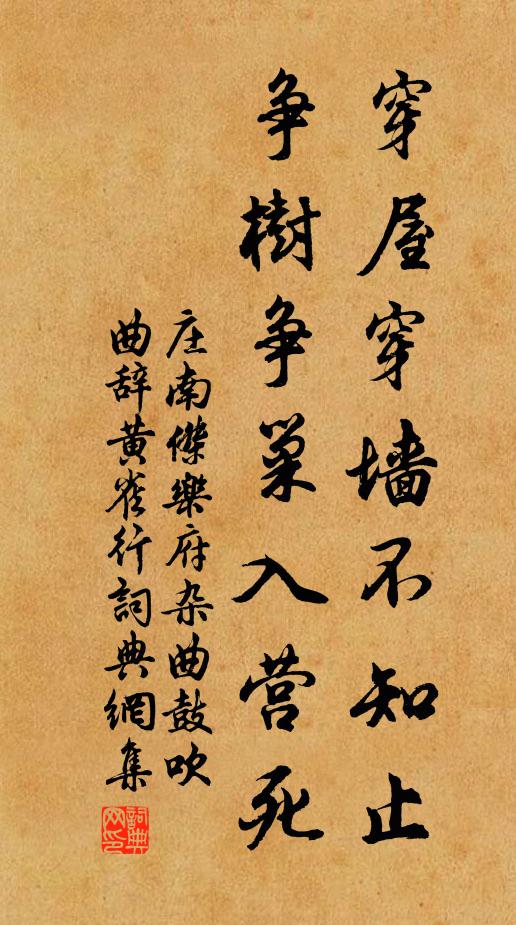 穿屋穿墙不知止
争樹争巢入营死
庄南傑樂府杂曲鼓吹
曲辞黄雀行詞典網集
詞典
网印